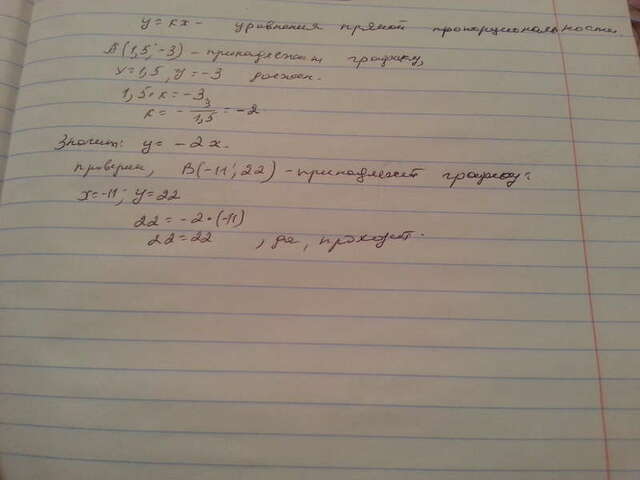 y = kx - уравнения прямой пропорциональности.
A(1,5; -3) - принадлежит графику,
x = 1,5, y = -3
1,5 · k = -3
k = - 3/1,5 = -2
Значит: y = -2x.
проверим, B(-11; 22) - принадлежит графику?
x = -11; y = 22
22 = -2 · (-11)
22 = 22, да, проходит.